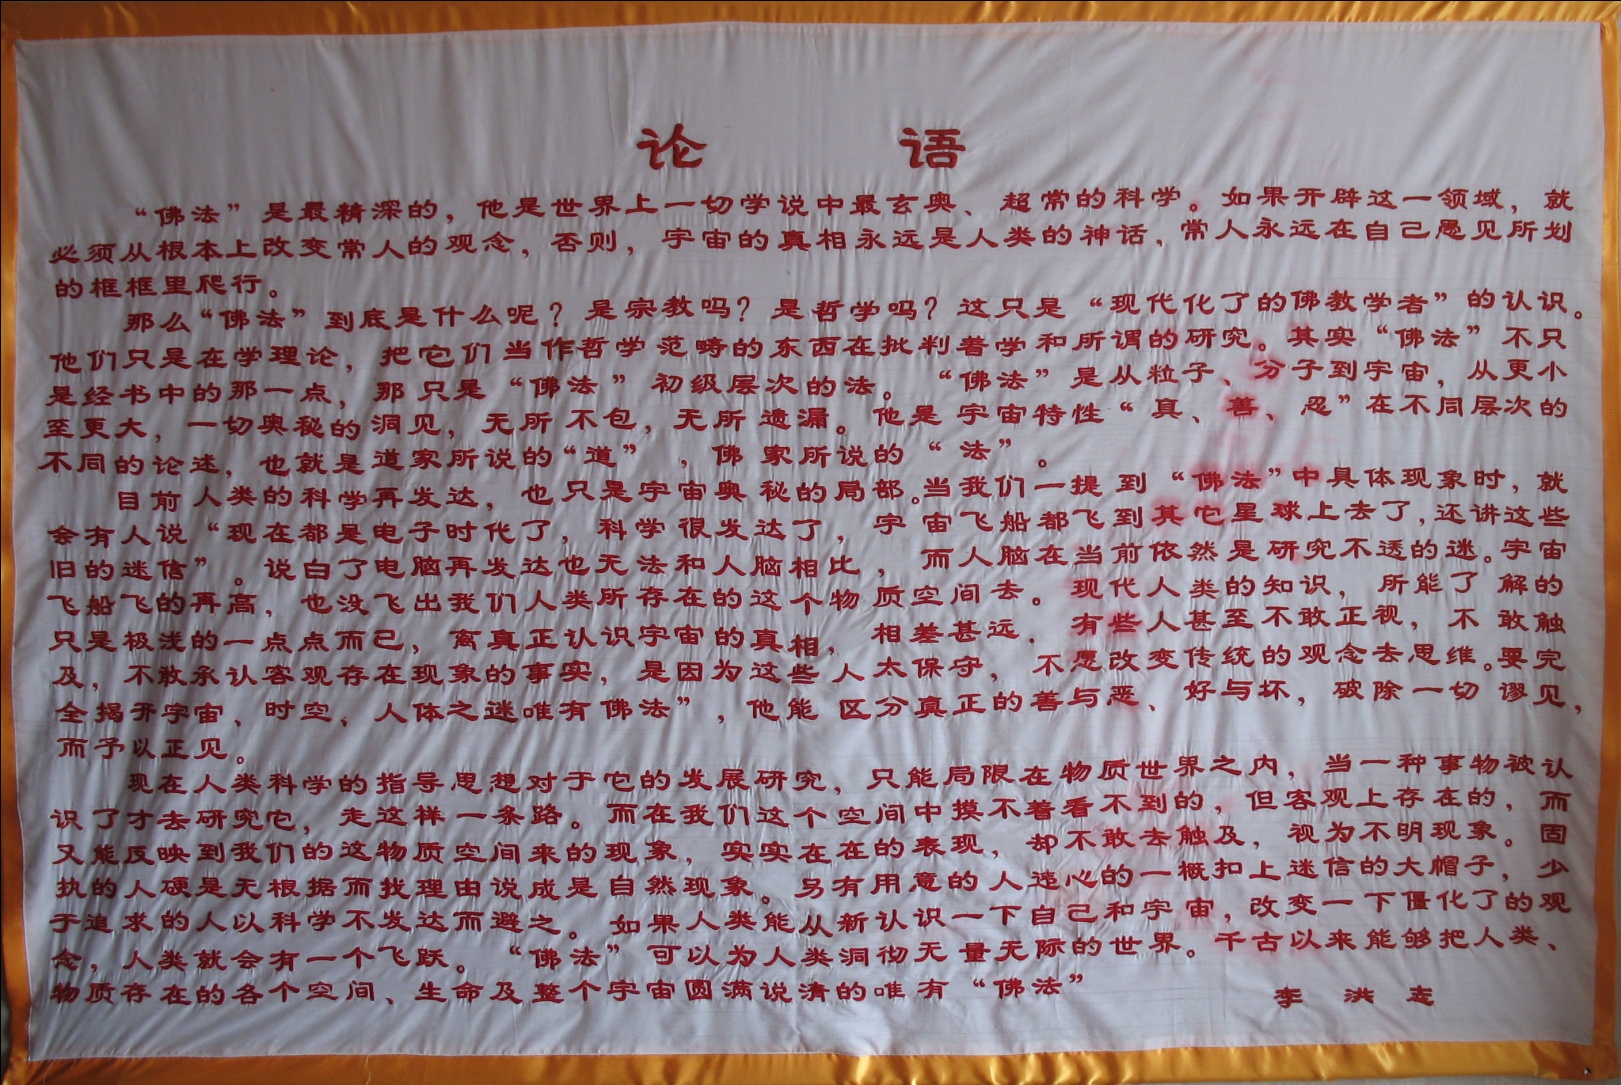 论 语
“佛法”是最精深的，他是世界上一切学说中最玄奥、超常的科学。如果开辟这一领域，就
必须从根本上改变常人的观念，否则，宇宙的真相永远是人类的神话，常人永远在自己愚见所划
的框框里爬行。
那么“佛法”到底是什么呢？是宗教吗？是哲学吗？这只是“现代化了的佛教学者”的认识。
他们只是在学理论，把它们当作哲学范畴的东西在批判着学和所谓的研究。其实“佛法”不只
是经书中的那一点，那只是“佛法”初级层次的法。“佛法”是从粒子、分子到宇宙，从更小
至更大，一切奥秘的洞见，无所不包，无所遗漏。他是宇宙特性“真、善、忍”在不同层次的
不同的论述，也就是道家所说的“道”，佛家所说的“法”。
目前人类的科学再发达，也只是宇宙奥秘的局部。当我们一提到“佛法”中具体现象时，就
会有人说“现在都是电子时代了，科学很发达了，宇宙飞船都飞到其它星球上去了，还讲这些
旧的迷信”。说白了电脑再发达也无法和人脑相比，而人脑在当前依然是研究不透的迷。宇宙
飞船飞的再高，也没飞出我们人类所存在的这个物质空间去。现代人类的知识，所能了解的
只是极浅的一点点而已，离真正认识宇宙的真相，相差甚远．有些人甚至不敢正视，不敢触
及，不敢承认客观存在现象的事实，是因为这些人太保守，不愿改变传统的观念去思维。要完
全揭开宇宙、时空、人体之迷唯有佛法”，他能区分真正的善与恶、好与坏，破除一切谬见，
而予以正见。
现在人类科学的指导思想对于它的发展研究，只能局限在物质世界之内，当一种事物被认
识了才去研究它，走这样一条路。而在我们这个空间中摸不着看不到的，但客观上存在的，而
又能反映到我们的这物质空间来的现象，实实在在的表现，却不敢去触及，视为不明现象。固
执的人硬是无根据而找理由说成是自然现象。另有用意的人违心的一概扣上迷信的大帽子，少
于追求的人以科学不发达而避之。如果人类能从新认识一下自己和宇宙，改变一下僵化了的观
念，人类就会有一个飞跃。“佛法”可以为人类洞彻无量无际的世界。千古以来能够把人类、
物质存在的各个空间、生命及整个宇宙圆满说清的唯有“佛法”
李洪志